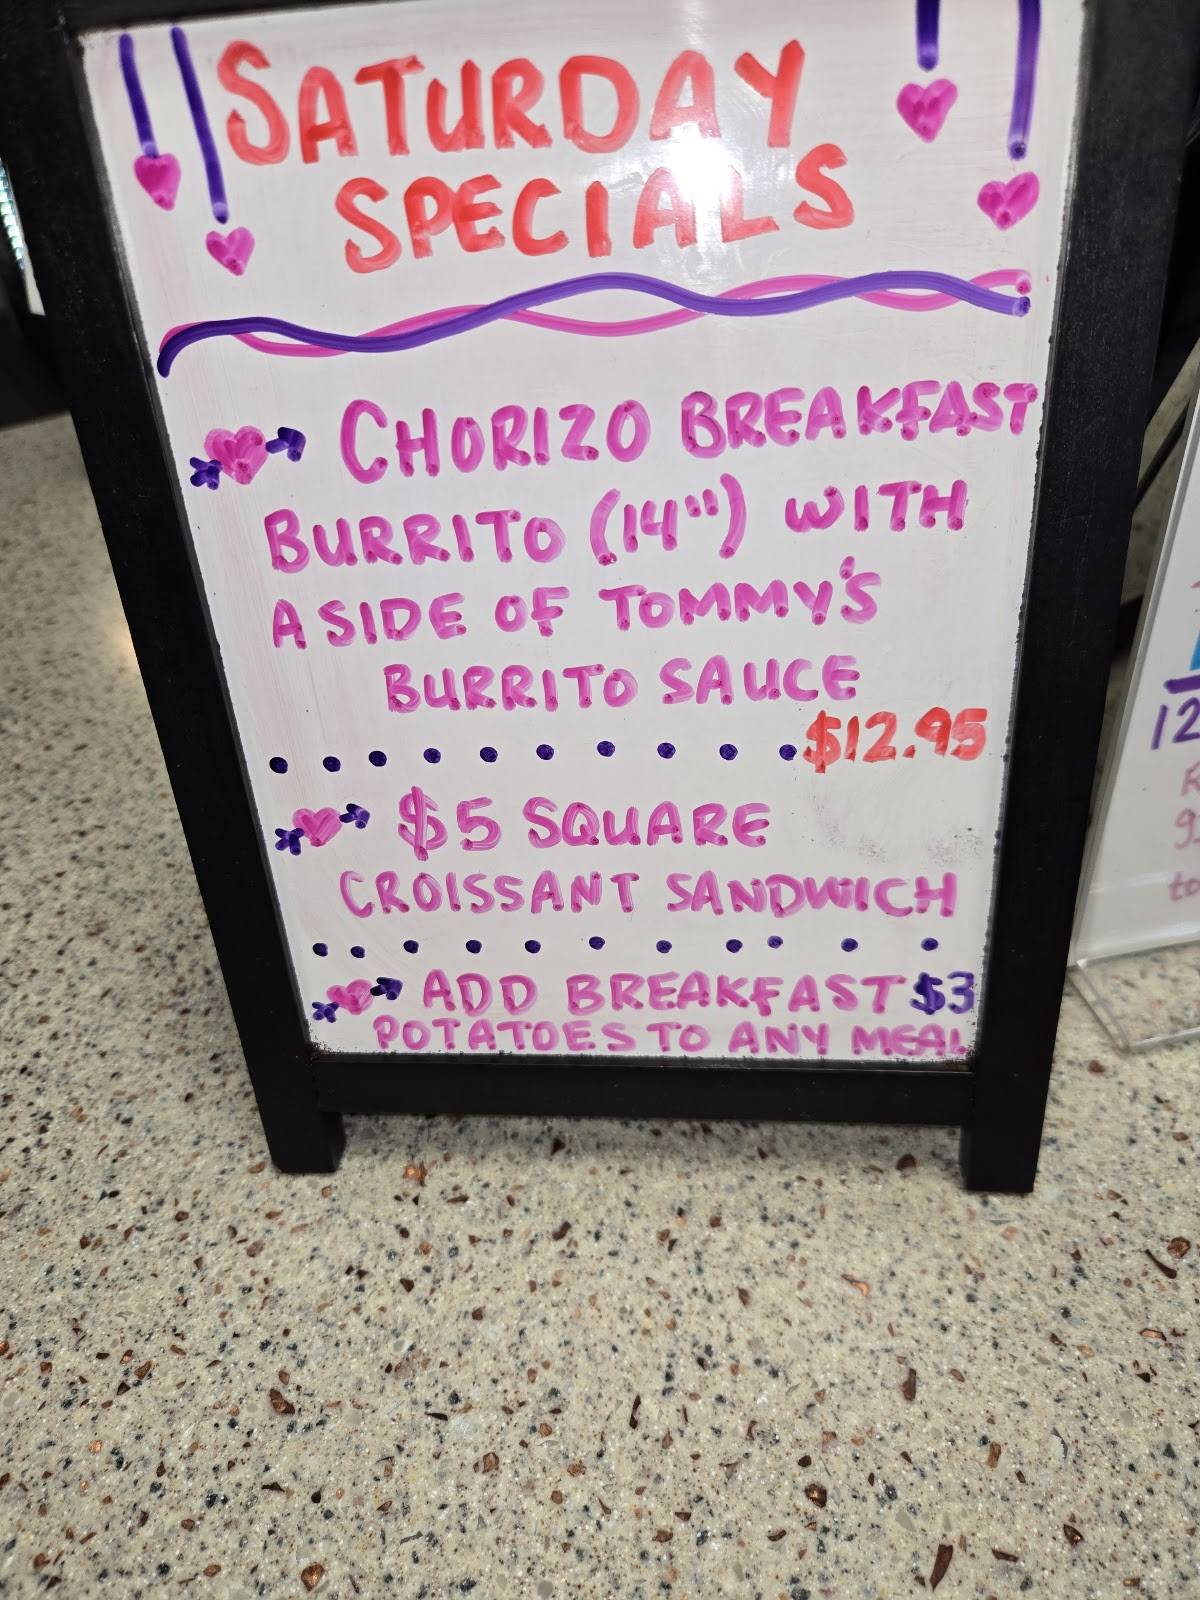 SATURDAY
SPECIALS
CHORIZO BREAKFAST
BURRITO (14") WITH
A SIDE OF TOMMY'S
BURRITO SAUCE
$12.95
$5 SQUARE
CROISSANT SANDWICH
ADD BREAKFAST $3
POTATOES TO ANY MEAL
12